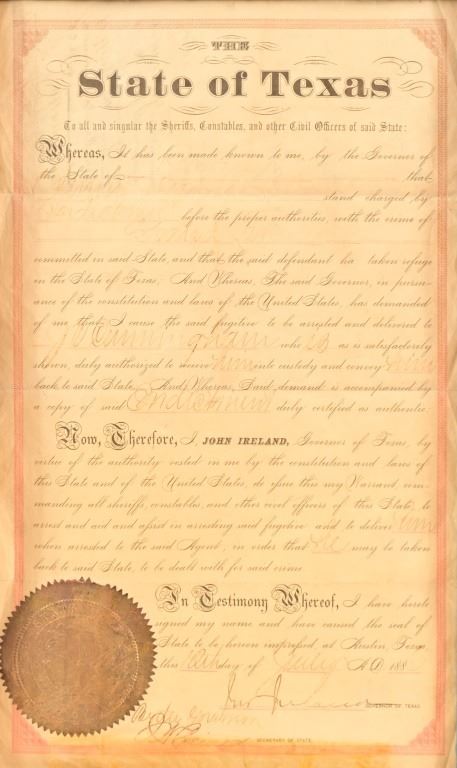 THE
State of Texas
To all and singular the Sheriffs, Constables, and other Civil Officers of said State:
Whereas, It has been made known to me, by the Governor of
the State of that
stand charged by
before the proper authorities, with the crime of
committed in said State, and that the said defendant ha taken refuge
in the State of Texas; And Whereas, The said Governor, in pursu-
ance of the constitution and laws of the United States, has demanded
of me that I cause the said fugitive to be arrested and delivered to
Cunningham who is as is satisfactorily
shown, duly authorized to receive him into custody and convey him
back to said State, And Whereas, Said demand is accompanied by
a copy of said Indictment duly certified as authentic.
Now, Therefore, I, JOHN IRELAND, Governor of Texas, by
virtue of the authority vested in me by the constitution and laws of
this State and of the United States, do issue this my Warrant, com-
manding all sheriffs, constables, and other civil officers of this State, to
arrest and aid and assist in arresting said fugitive and to deliver him
when arrested to the said Agent, in order that he may be taken
back to said State, to be dealt with for said crime.
In Testimony Whereof, I have hereto
signed my name and have caused the seal of
State to be hereon impressed at Austin, Texas,
this day of July A.D. 188
Jno Ireland
GOVERNOR OF TEXAS.
SECRETARY OF STATE.